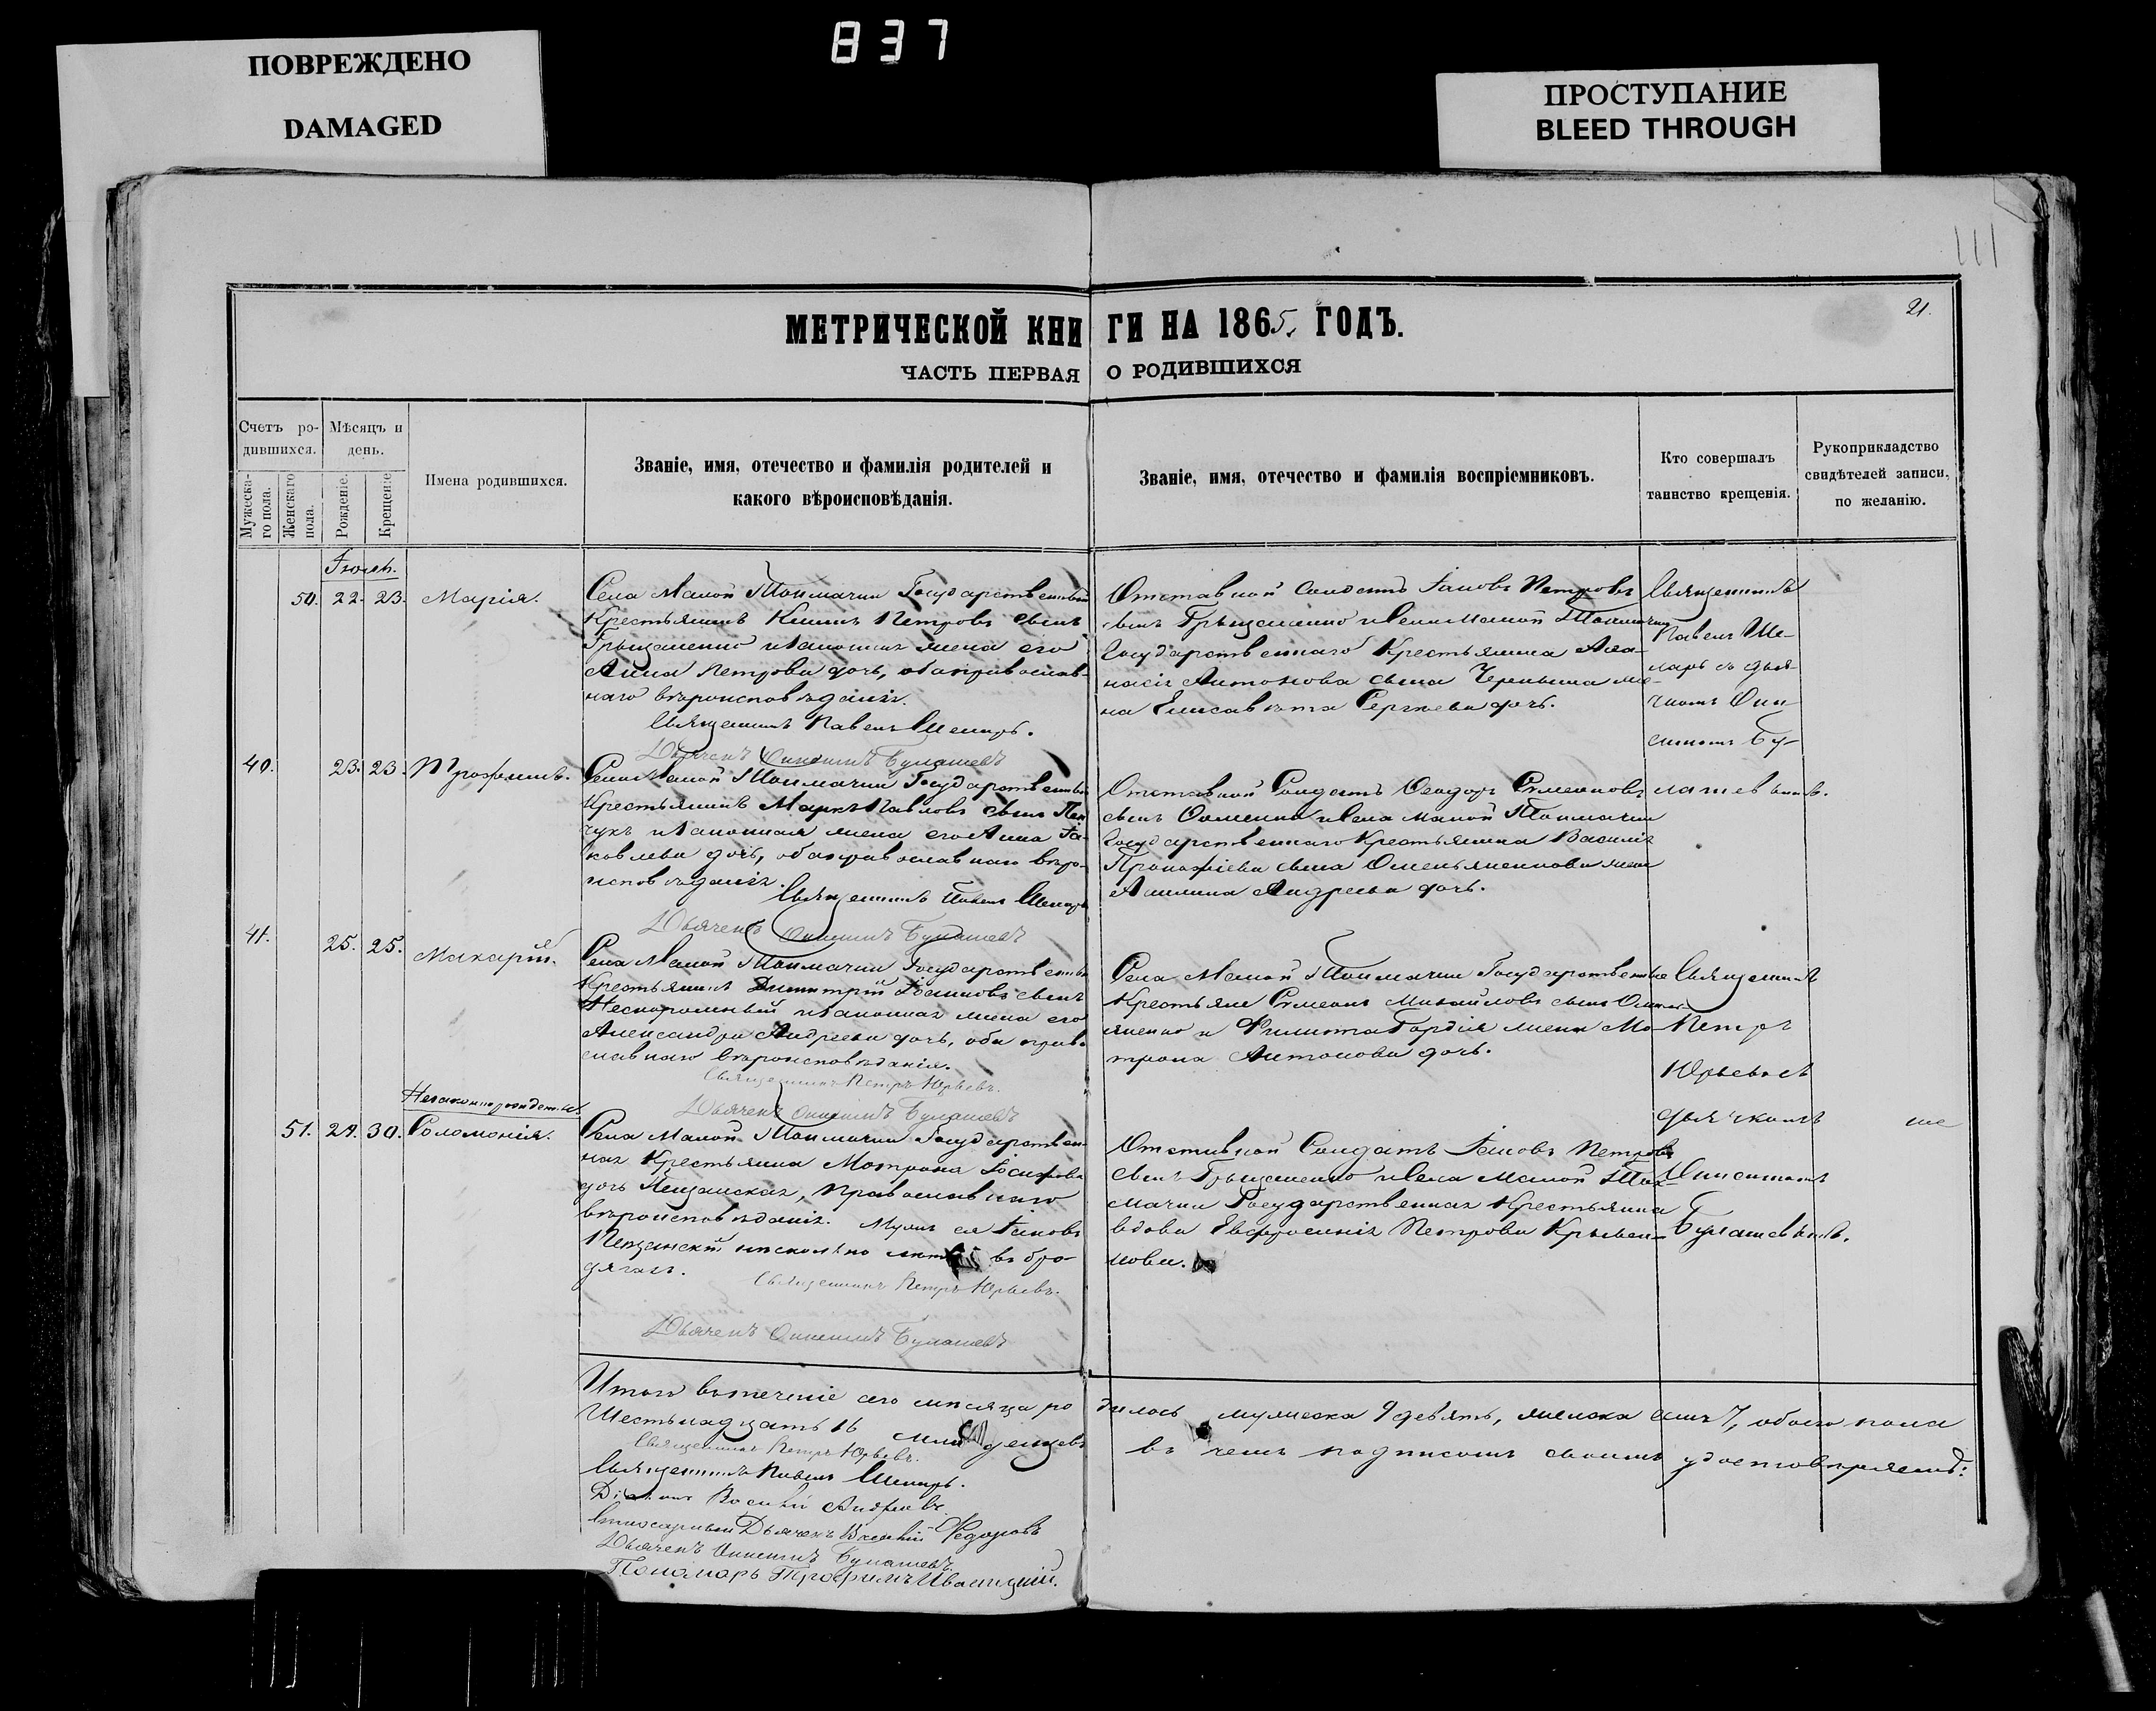 837
ПОВРЕЖДЕНО
DAMAGED
ПРОСТУПАНИЕ
BLEED THROUGH
111
21.
МЕТРИЧЕСКОЙ КНИ ГИ НА 1865. ГОДЪ.
ЧАСТЬ ПЕРВАЯ О РОДИВШИХСЯ
Счетъ ро-
дившихся.
Мѣсяцъ и
день.
Мужеска-
го пола.
Женскаго
пола.
Рожденіе.
Крещеніе
Имена родившихся.
Званіе, имя, отечество и фамилія родителей и
какого вѣроисповѣданія.
Званіе, имя, отечество и фамилія воспріемниковъ.
Кто совершалъ
таинство крещенія.
Рукоприкладство
свидѣтелей записи,
по желанію.
Іюль.
50. 22. 23. Марія.
Села Малой Токмачки Государственный
Крестьянинъ Петровъ сынъ
Грыщенко и законная жена его
Анна Петрова дочь, оба православ-
наго вѣроисповѣданія.
Священникъ Павелъ
Дьячекъ Онисимъ Булашевъ
Отставной Солдатъ Іаковъ Петровъ
сынъ Грыщенко и села Малой Токмачки
Государственнаго Крестьянина Афа-
насія Антонова сына же-
на Елисавета Сергѣева дочь.
Священникъ
Павелъ
съ дья-
чкомъ Они-
симомъ Бу-
лашевымъ.
40. 23. 23. Трофимъ.
Села Малой Токмачки Государственный
Крестьянинъ Маркъ Павловъ сынъ
и законная жена его Анна Іа-
ковлева дочь, оба православнаго вѣро-
исповѣданія.
Священникъ Павелъ
Дьячекъ Онисимъ Булашевъ
Отставной Солдатъ Ѳеодоръ Симеоновъ
сынъ и села Малой Токмачки
Государственнаго Крестьянина Василія
Прокофіева сына жена
Акилина Андреева дочь.
41. 25. 25. Макарій.
Села Малой Токмачки Государственный
Крестьянинъ Димитрій Іоанновъ сынъ
и законная жена его
Александра Андреева дочь, оба право-
славнаго вѣроисповѣданія.
Священникъ Петръ Юрьевъ.
Дьячекъ Онисимъ Булашевъ
Села Малой Токмачки Государственные
Крестьяне Симеонъ Михайловъ сынъ
и Гордія жена Ма-
трона Антонова дочь.
Священникъ
Петръ
Юрьевъ съ
дьячкомъ
Онисимомъ
Булашевымъ.
Незаконнорожденная
51. 29. 30. Соломонія.
Села Малой Токмачки Государствен-
ная Крестьянка Матрона Іосифова
дочь Пещанская, православнаго
вѣроисповѣданія. Мужъ ея Іаковъ
Пещанскій нѣсколько лѣтъ въ бро-
дягахъ.
Священникъ Петръ Юрьевъ.
Дьячекъ Онисимъ Булашевъ
Отставной Солдатъ Іаковъ Петровъ
сынъ Грыщенко и села Малой Ток-
мачки Государственная Крестьянка
вдова Евфросинія Петрова
Итого въ теченіе сего мѣсяца ро дилось мужеска 9 девять, женска семь 7, обоего пола
Шестьнадцать 16 младенцевъ въ чемъ подписомъ своимъ удостовѣряемъ:
Священникъ Петръ Юрьевъ.
Священникъ Павелъ
Діаконъ Василій Андреевъ
Дьячекъ Василій Ѳедоровъ
Дьячекъ Онисимъ Булашевъ.
Пономарь Трофимъ Иваницкій.